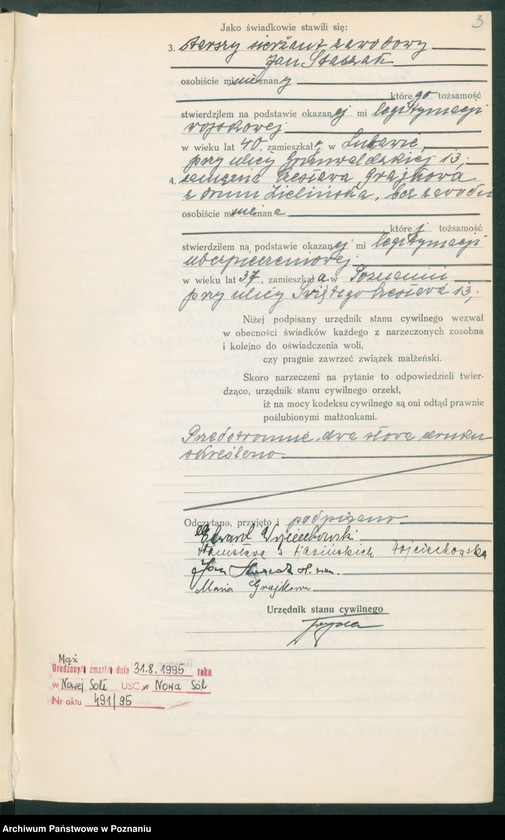 3
Jako świadkowie stawili się:
3. Starszy sierżant zawodowy
Jan Staszak
osobiście mi nieznany
którego tożsamość
stwierdziłem na podstawie okazanej mi legitymacji
wojskowej
w wieku lat 40, zamieszkał w
przy ulicy Grunwaldzkiej 13,
4. zamężna Grajkowa
z domu Zielińska, bez zawodu
osobiście mi nieznana
której tożsamość
stwierdziłem na podstawie okazanej mi legitymacji
ubezpieczeniowej
w wieku lat 37, zamieszkała w Poznaniu
przy ulicy Świętego 13,
Niżej podpisany urzędnik stanu cywilnego wezwał
w obecności świadków każdego z narzeczonych zosobna
i kolejno do oświadczenia woli,
czy pragnie zawrzeć związek małżeński.
Skoro narzeczeni na pytanie to odpowiedzieli twier-
dząco, urzędnik stanu cywilnego orzekł,
iż na mocy kodeksu cywilnego są oni odtąd prawnie
poślubionymi małżonkami.
Przedstronnie dwa słowa druku
określono
Odczytano, przyjęto i podpisano
Edward Wojciechowski
Stanisława z Wojciechowska
Jan Staszak
Maria Grajkowa
Urzędnik stanu cywilnego
Mąż
zmarł dnia 31.8.1995 roku
w Nowej Soli USC Nowa Sól
Nr aktu 491/95
Archiwum Państwowe w Poznaniu